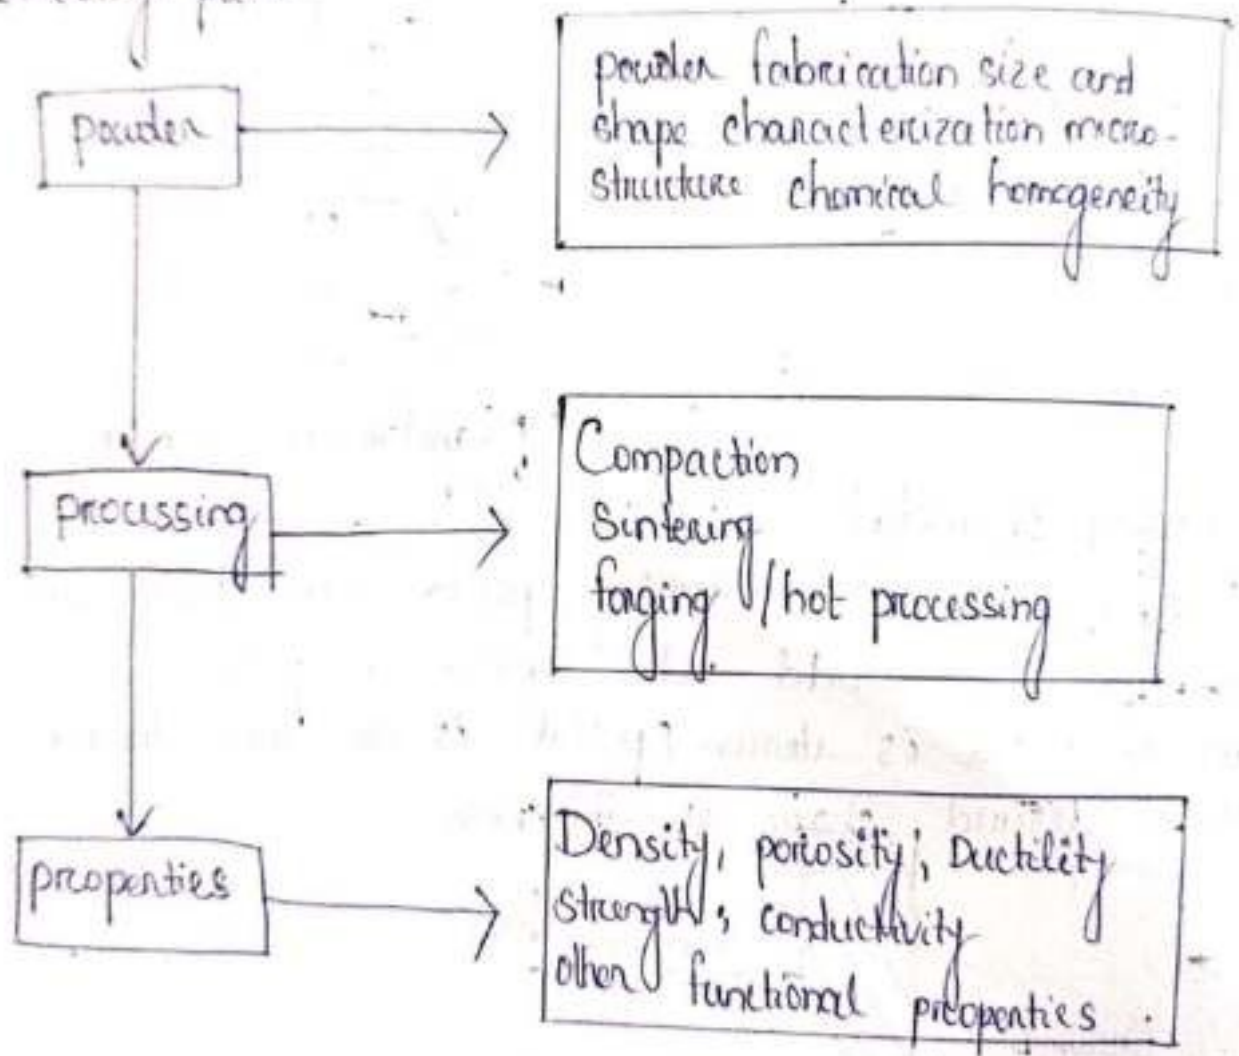 powder
powder fabrication size and
shape characterization micro-
structure chemical homogeneity
processing
Compaction
Sintering
forging /hot processing
properties
Density, porosity, Ductility
strength, conductivity
other functional properties